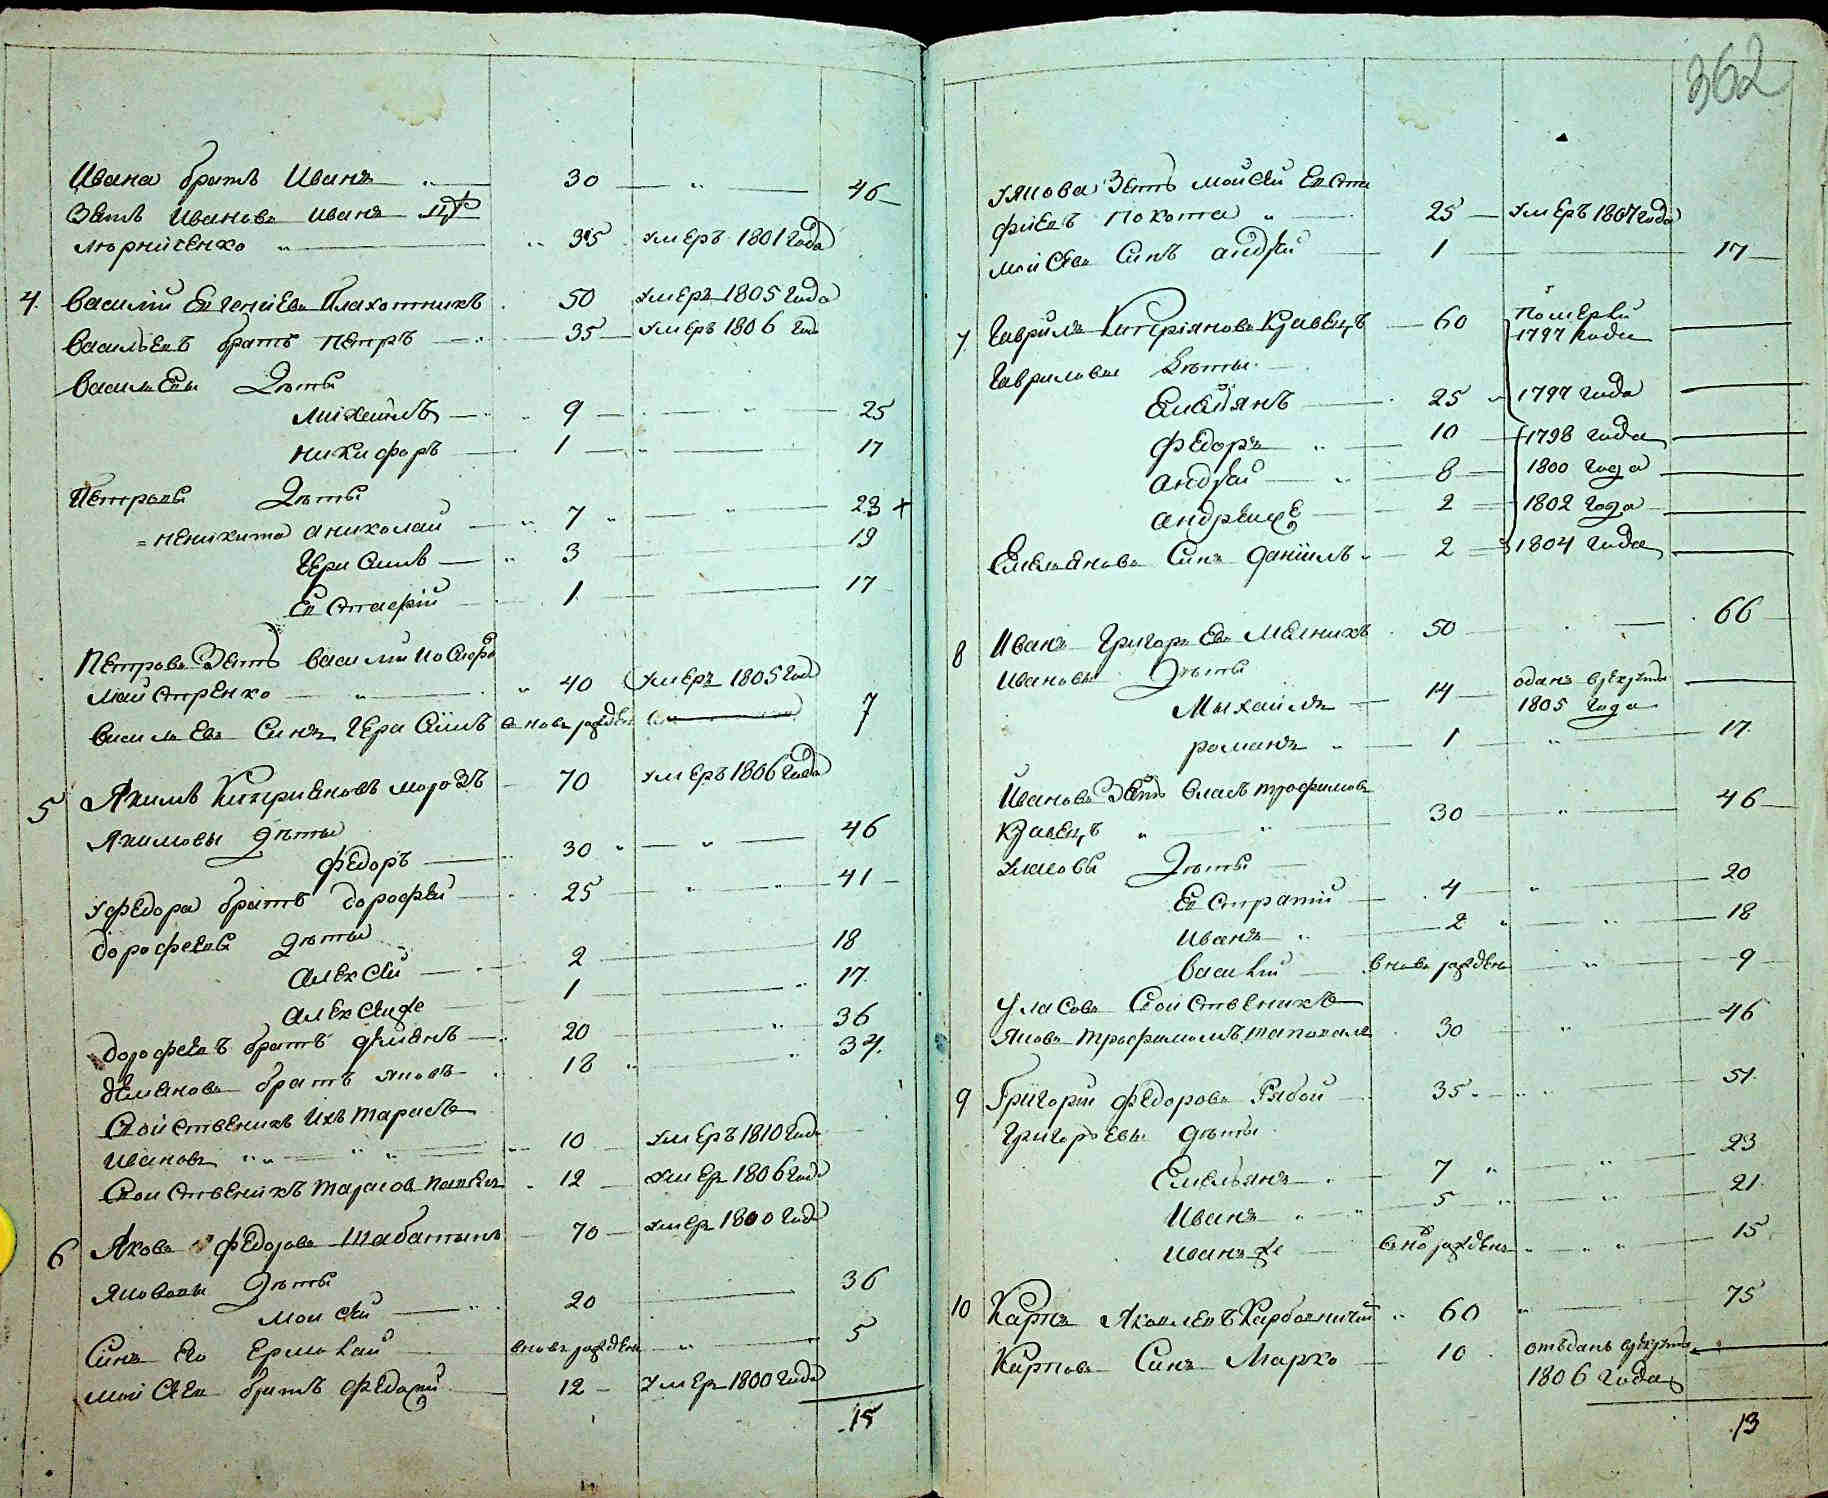 Ивана братъ Иванъ 30 46
Зять Ивановъ Иванъ
Люрниченко 35 умеръ 1801 года
4. Василій Евгеніевъ Плахотникъ 50 умеръ 1805 года
Васильевъ братъ Петръ 35 умеръ 1806 года
Васильевы Дѣти
Михаилъ 9 25
Никифоръ 1 17
Петровы Дѣти
= неникита а николай 7 23 +
Герасимъ 3 19
Евстафій 1 17
Петровъ Зять Василій Іосифовъ
Майстренко 40 умеръ 1805 года
Васильевъ Синъ Герасимъ вновь рожденъ 7
5 Якимъ Киприяновъ морозъ 70 умеръ 1806 года
Якимовы дѣти
Федоръ 30 46
у Федора братъ Дорофей 25 41
Дорофеевы дѣти
Алексей 2 18
Алексей же 1 17
Дорофеевъ братъ Демянъ 20 36
Демяновъ братъ яковъ 18 34
Свойственикъ ихъ Тарасъ
Ивановъ 10 умеръ 1810 года
Свойственикъ Тарасов 12 умеръ 1806 года
6 Яковъ Федоровъ Шабатинъ 70 умеръ 1800 года
Яковавы Дѣти
Мойсей 20 36
Синъ Его Ермолай вновь рожденъ 5
Мойсеев братъ Федоръ 12 умеръ 1800 года
15
362
Якова Зять Мойсей Евста
фиевъ Покота 25 умеръ 1807 года
Мойсева Синъ андрей 1 17
7 Гаврила Киприяновъ Кравецъ 60 померли
1797 года
Гавриловы дѣти
Емелянъ 25 1797 года
Федоръ 10 1798 года
Андрей 8 1800 года
Андрей же 2 1802 года
Емельяновъ Синъ Даниилъ 2 1804 года
8 Иванъ Григорьевъ Мелникъ 50 66
Ивановы Дѣти
Михаилъ 14 оданъ в рекруты
1805 года
романъ 1 17
Ивановъ Зять Власъ Трофимовъ
Кравецъ 30 46
Уласовы Дѣти
Евстратій 4 20
Иванъ 2 18
Василій вновь рожденъ 9
Уласовъ Свойственикъ
Яковъ Трофимовъ 30 46
9 Григорій Федоровъ Рябой 35 51
Григорьевы дѣти
Емельянъ 7 23
Иванъ 5 21
Иванъ же вно рожденъ 15
10 Карпъ Яковлевъ 60 75
Карповъ Синъ Марко 10 отъданъ в рекруты
1806 года
13